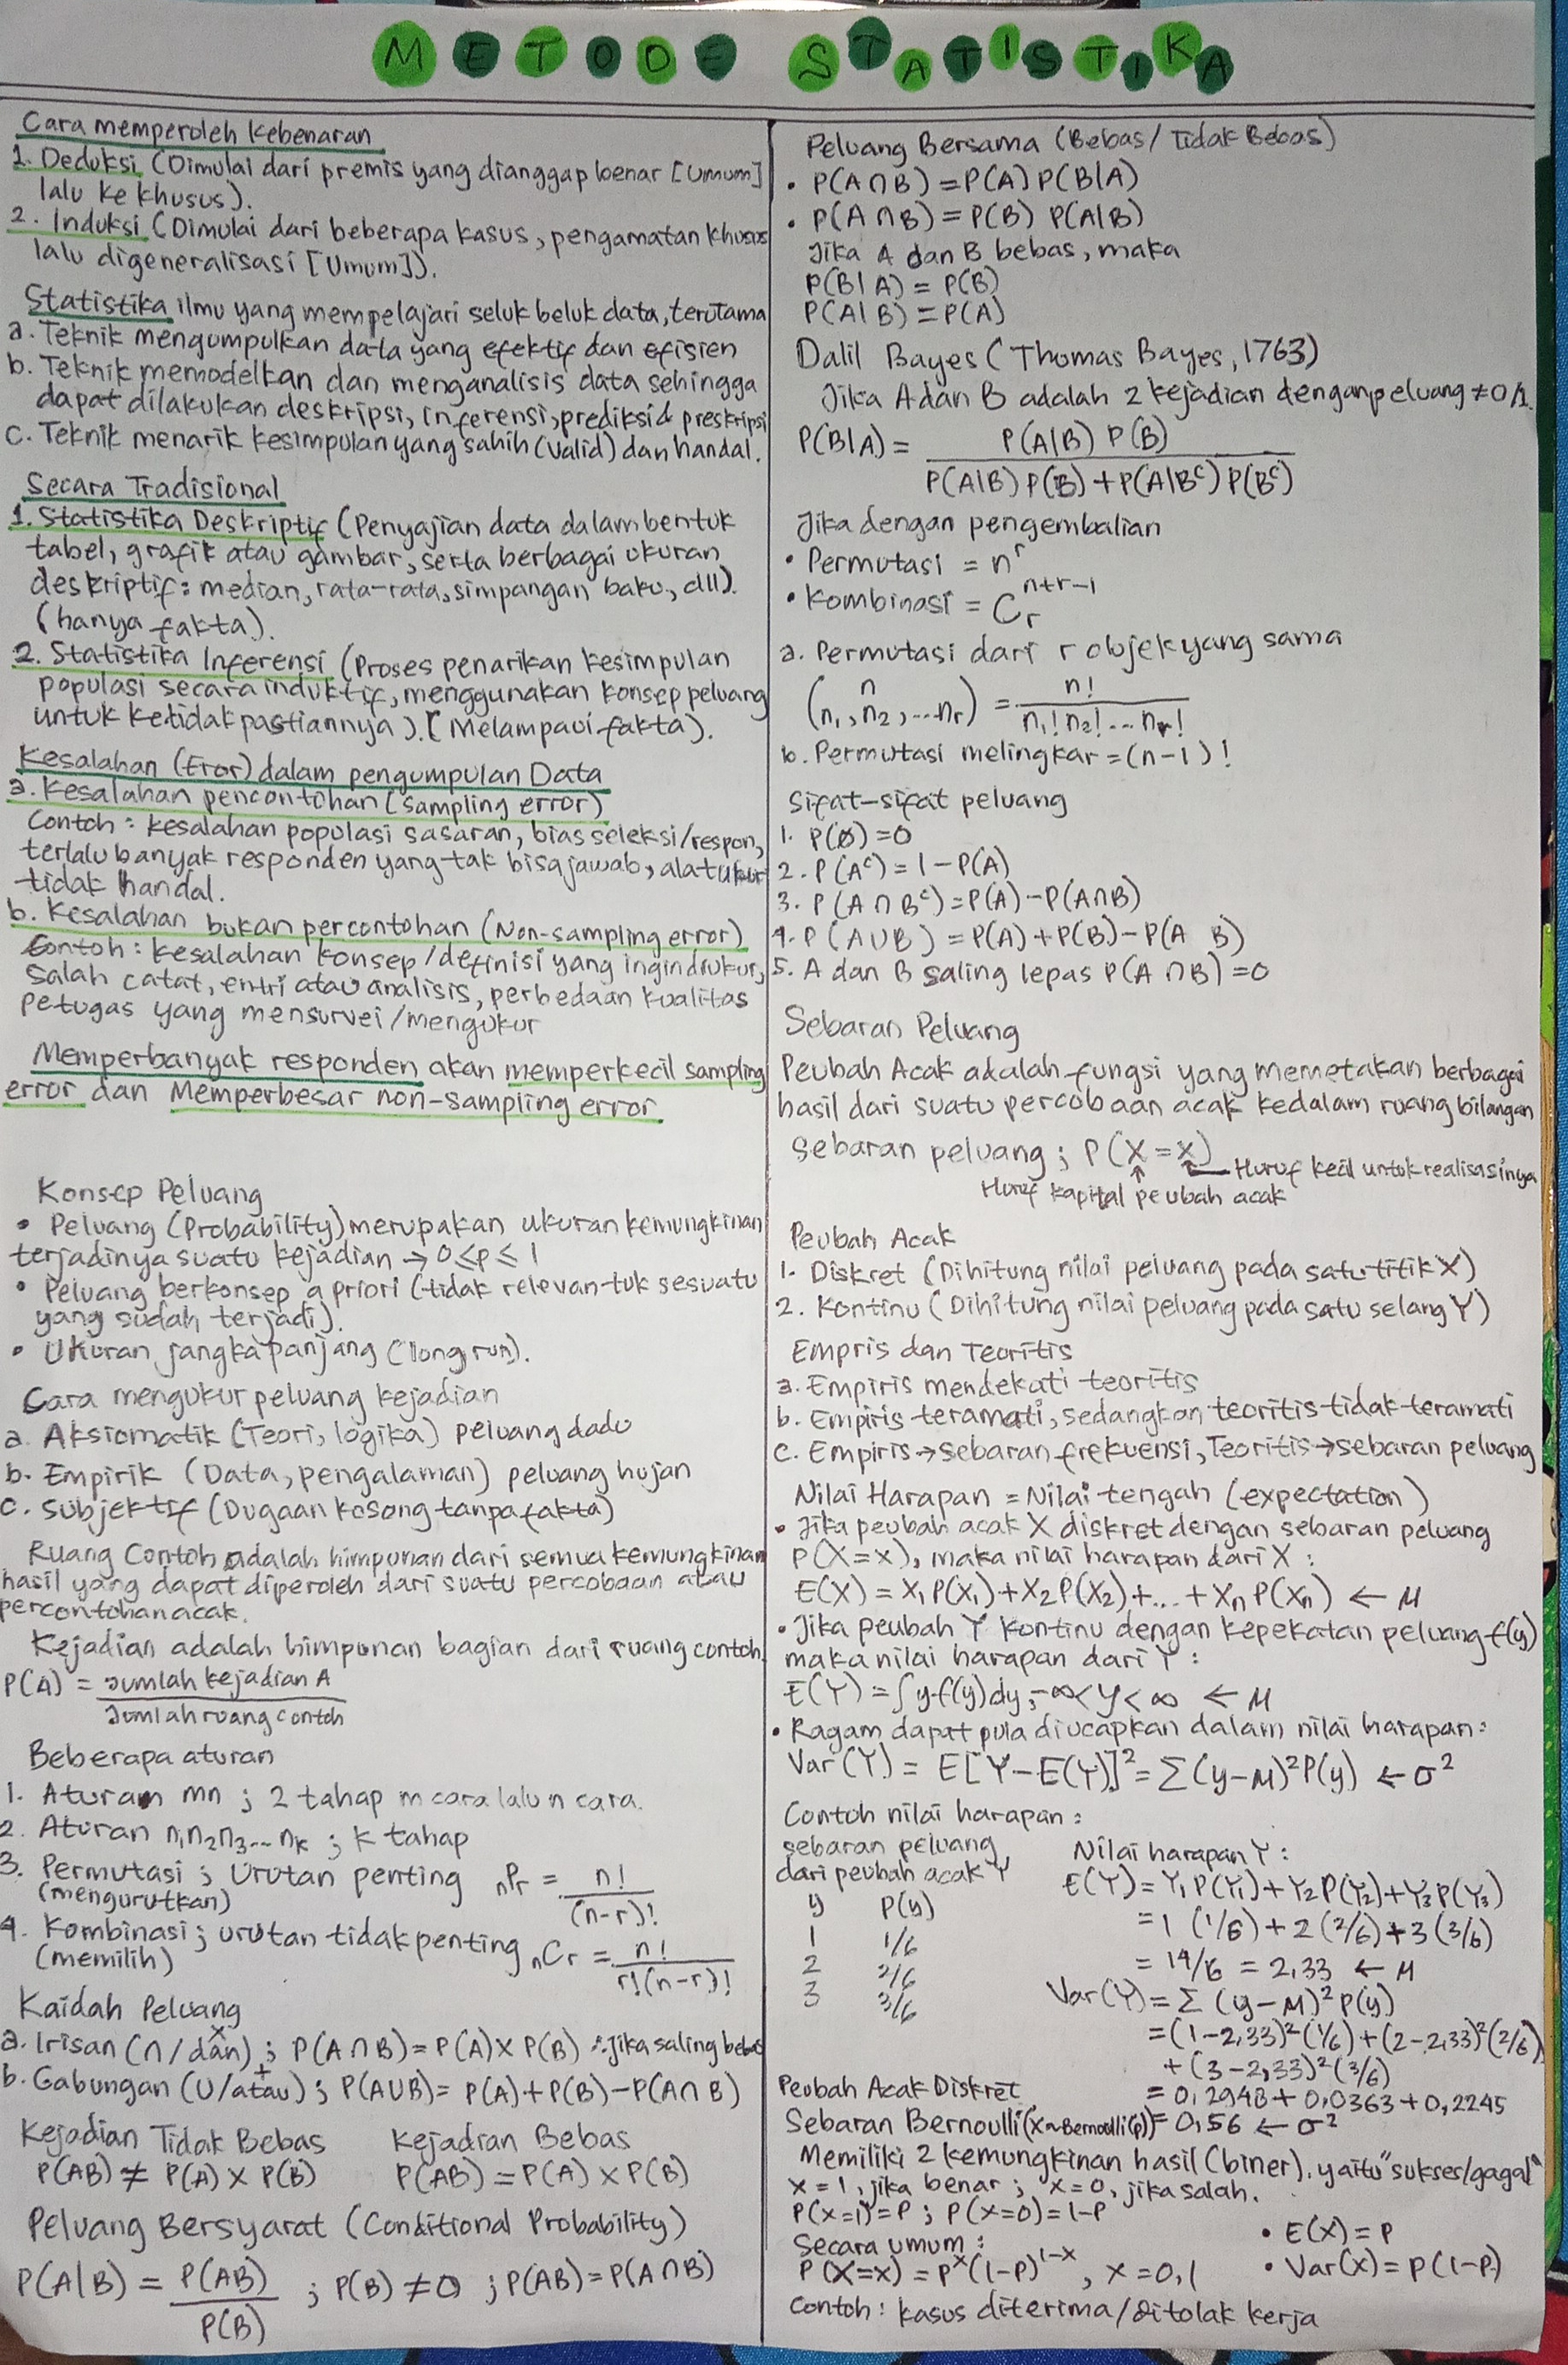 METODE STATISTIKA
Cara memperoleh kebenaran
1. Deduksi (Dimulai dari premis yang dianggap benar [Umum]
lalu ke khusus).
2. Induksi (Dimulai dari beberapa kasus, pengamatan khusus
lalu digeneralisasi [Umum]).
Statistika ilmu yang mempelajari seluk beluk data, terutama
a. Teknik mengumpulkan data yang efektif dan efisien
b. Teknik memodelkan dan menganalisis data sehingga
dapat dilakukan deskripsi, inferensi, prediksi & preskripsi
c. Teknik menarik kesimpulan yang sahih (valid) dan handal.
Secara Tradisional
1. Statistika Deskriptif (Penyajian data dalam bentuk
tabel, grafik atau gambar, serta berbagai ukuran
deskriptif: median, rata-rata, simpangan baku, dll).
(hanya fakta).
2. Statistika Inferensi (Proses penarikan kesimpulan
populasi secara induktif, menggunakan konsep peluang
untuk ketidakpastiannya). [Melampaui fakta).
Kesalahan (Eror) dalam pengumpulan Data
a. Kesalahan pencontohan (sampling error)
Contoh: kesalahan populasi sasaran, bias seleksi/respon,
terlalu banyak responden yang tak bisa jawab, alat ukur
tidak handal.
b. Kesalahan bukan percontohan (Non-sampling error)
Contoh: kesalahan konsep/definisi yang ingin diukur,
salah catat, entri atau analisis, perbedaan kualitas
petugas yang mensurvei/mengukur
Memperbanyak responden akan memperkecil sampling
error dan Memperbesar non-sampling error
Konsep Peluang
• Peluang (Probability) merupakan ukuran kemungkinan
terjadinya suatu kejadian → 0≤p≤1
• Peluang berkonsep a priori (tidak relevan tuk sesuatu
yang sudah terjadi).
• Ukuran jangka panjang (long run).
Cara mengukur peluang kejadian
a. Aksiomatik (Teori, logika) peluang dadu
b. Empirik (Data, pengalaman) peluang hujan
c. Subjektif (Dugaan kosong tanpa fakta)
Ruang Contoh adalah himpunan dari semua kemungkinan
hasil yang dapat diperoleh dari suatu percobaan atau
percontohan acak.
Kejadian adalah himpunan bagian dari ruang contoh
P(A) = Jumlah kejadian A / Jumlah ruang contoh
Beberapa aturan
1. Aturan mn ; 2 tahap m cara lalu n cara.
2. Aturan n₁n₂n₃...nₖ ; k tahap
3. Permutasi ; Urutan penting nPr = n! / (n-r)!
(mengurutkan)
4. Kombinasi ; urutan tidak penting nCr = n! / r!(n-r)!
(memilih)
Kaidah Peluang
x
a. Irisan (∩/dan) ; P(A∩B) = P(A) x P(B) ∴ Jika saling bebas
+
b. Gabungan (U/atau) ; P(AUB) = P(A)+P(B)-P(A∩B)
Kejadian Tidak Bebas Kejadian Bebas
P(AB) ≠ P(A) x P(B) P(AB) = P(A) x P(B)
Peluang Bersyarat (Conditional Probability)
P(A|B) = P(AB) / P(B) ; P(B) ≠ 0 ; P(AB) = P(A∩B)
Peluang Bersama (Bebas/Tidak Bebas)
• P(A∩B) = P(A) P(B|A)
• P(A∩B) = P(B) P(A|B)
Jika A dan B bebas, maka
P(B|A) = P(B)
P(A|B) = P(A)
Dalil Bayes (Thomas Bayes, 1763)
Jika A dan B adalah 2 kejadian dengan peluang ≠ 0/1.
P(B|A) = P(A|B) P(B) / P(A|B) P(B) + P(A|Bᶜ) P(Bᶜ)
Jika dengan pengembalian
• Permutasi = nʳ
• Kombinasi = C r n+r-1
a. Permutasi dari r objek yang sama
(n n₁, n₂, ... nr) = n! / n₁! n₂! ... nr!
b. Permutasi melingkar = (n-1)!
Sifat-sifat peluang
1. P(ø) = 0
2. P(Aᶜ) = 1 - P(A)
3. P(A∩Bᶜ) = P(A) - P(A∩B)
4. P(AUB) = P(A) + P(B) - P(A B)
5. A dan B saling lepas P(A∩B) = 0
Sebaran Peluang
Peubah Acak adalah fungsi yang memetakan berbagai
hasil dari suatu percobaan acak kedalam ruang bilangan
Sebaran peluang ; P(X = x)
↑ Huruf kecil untuk realisasinya
Huruf kapital peubah acak
Peubah Acak
1. Diskret (Dihitung nilai peluang pada satu titik X)
2. Kontinu (Dihitung nilai peluang pada satu selang Y)
Empris dan Teoritis
a. Empiris mendekati teoritis
b. Empiris teramati, sedangkan teoritis tidak teramati
c. Empiris → sebaran frekuensi, Teoritis → sebaran peluang
Nilai Harapan = Nilai tengah (expectation)
• Jika peubah acak X diskret dengan sebaran peluang
P(X=x), maka nilai harapan dari X :
E(X) = X₁P(X₁) + X₂P(X₂) + ... + XnP(Xn) ← M
• Jika peubah Y kontinu dengan kepekatan peluang f(y)
maka nilai harapan dari Y :
E(Y) = ∫y f(y) dy ; -∞ < y < ∞ ← M
• Ragam dapat pula diucapkan dalam nilai harapan :
Var(Y) = E[Y - E(Y)]² = Σ(y-M)²P(y) ← σ²
Contoh nilai harapan :
sebaran peluang
dari peubah acak Y
y P(y)
1 1/6
2 2/6
3 3/6
Nilai harapan Y :
E(Y) = Y₁P(Y₁) + Y₂P(Y₂) + Y₃P(Y₃)
= 1 (1/6) + 2 (2/6) + 3 (3/6)
= 14/6 = 2,33 ← M
Var(Y) = Σ (y-M)² P(y)
= (1-2,33)²(1/6) + (2-2,33)²(2/6)
+ (3-2,33)²(3/6)
= 0,2948 + 0,0363 + 0,2245
= 0,56 ← σ²
Peubah Acak Diskret
Sebaran Bernoulli (X~Bernoulli(p))
Memiliki 2 kemungkinan hasil (biner), yaitu "sukses/gagal"
x = 1, jika benar ; x = 0, jika salah.
P(x=1) = P ; P(x=0) = 1-P
Secara umum :
P(X=x) = pˣ(1-p)¹⁻ˣ, x = 0,1
• E(X) = P
• Var(X) = p(1-p)
Contoh : kasus diterima/ditolak kerja